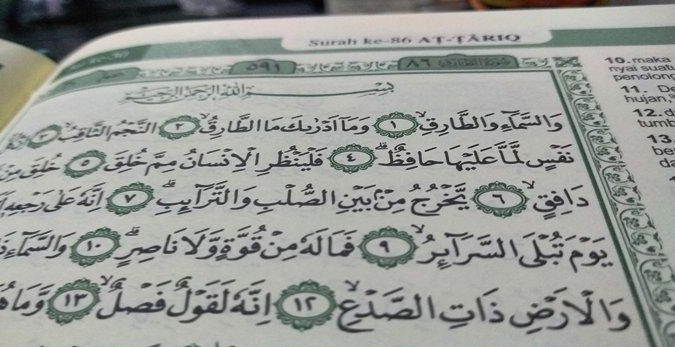 Surah ke-86 AṬ-ṬĀRIQ
٥٩١
٨٦
بِسْمِ اللّٰهِ الرَّحْمٰنِ الرَّحِيْمِ
وَالسَّمَاۤءِ وَالطَّارِقِۙ ١ وَمَآ اَدْرٰىكَ مَا الطَّارِقُۙ ٢ النَّجْمُ الثَّاقِبُۙ ٣
نَفْسٍ لَّمَّا عَلَيْهَا حَافِظٌۗ ٤ فَلْيَنْظُرِ الْاِنْسَانُ مِمَّ خُلِقَ ٥ خُلِقَ مِنْ
دَافِقٍۙ ٦ يَّخْرُجُ مِنْۢ بَيْنِ الصُّلْبِ وَالتَّرَاۤىِٕبِۗ ٧ اِنَّهٗ عَلٰى رَجْعِهٖ
يَوْمَ تُبْلَى السَّرَاۤىِٕرُۙ ٩ فَمَا لَهٗ مِنْ قُوَّةٍ وَّلَا نَاصِرٍۗ ١٠ وَالسَّمَاۤءِ
وَالْاَرْضِ ذَاتِ الصَّدْعِۙ ١٢ اِنَّهٗ لَقَوْلٌ فَصْلٌۙ ١٣ وَّمَا
10. maka
nyai suatu
penolong
11. De
hujan,
12. d
tumb
13.
be
da